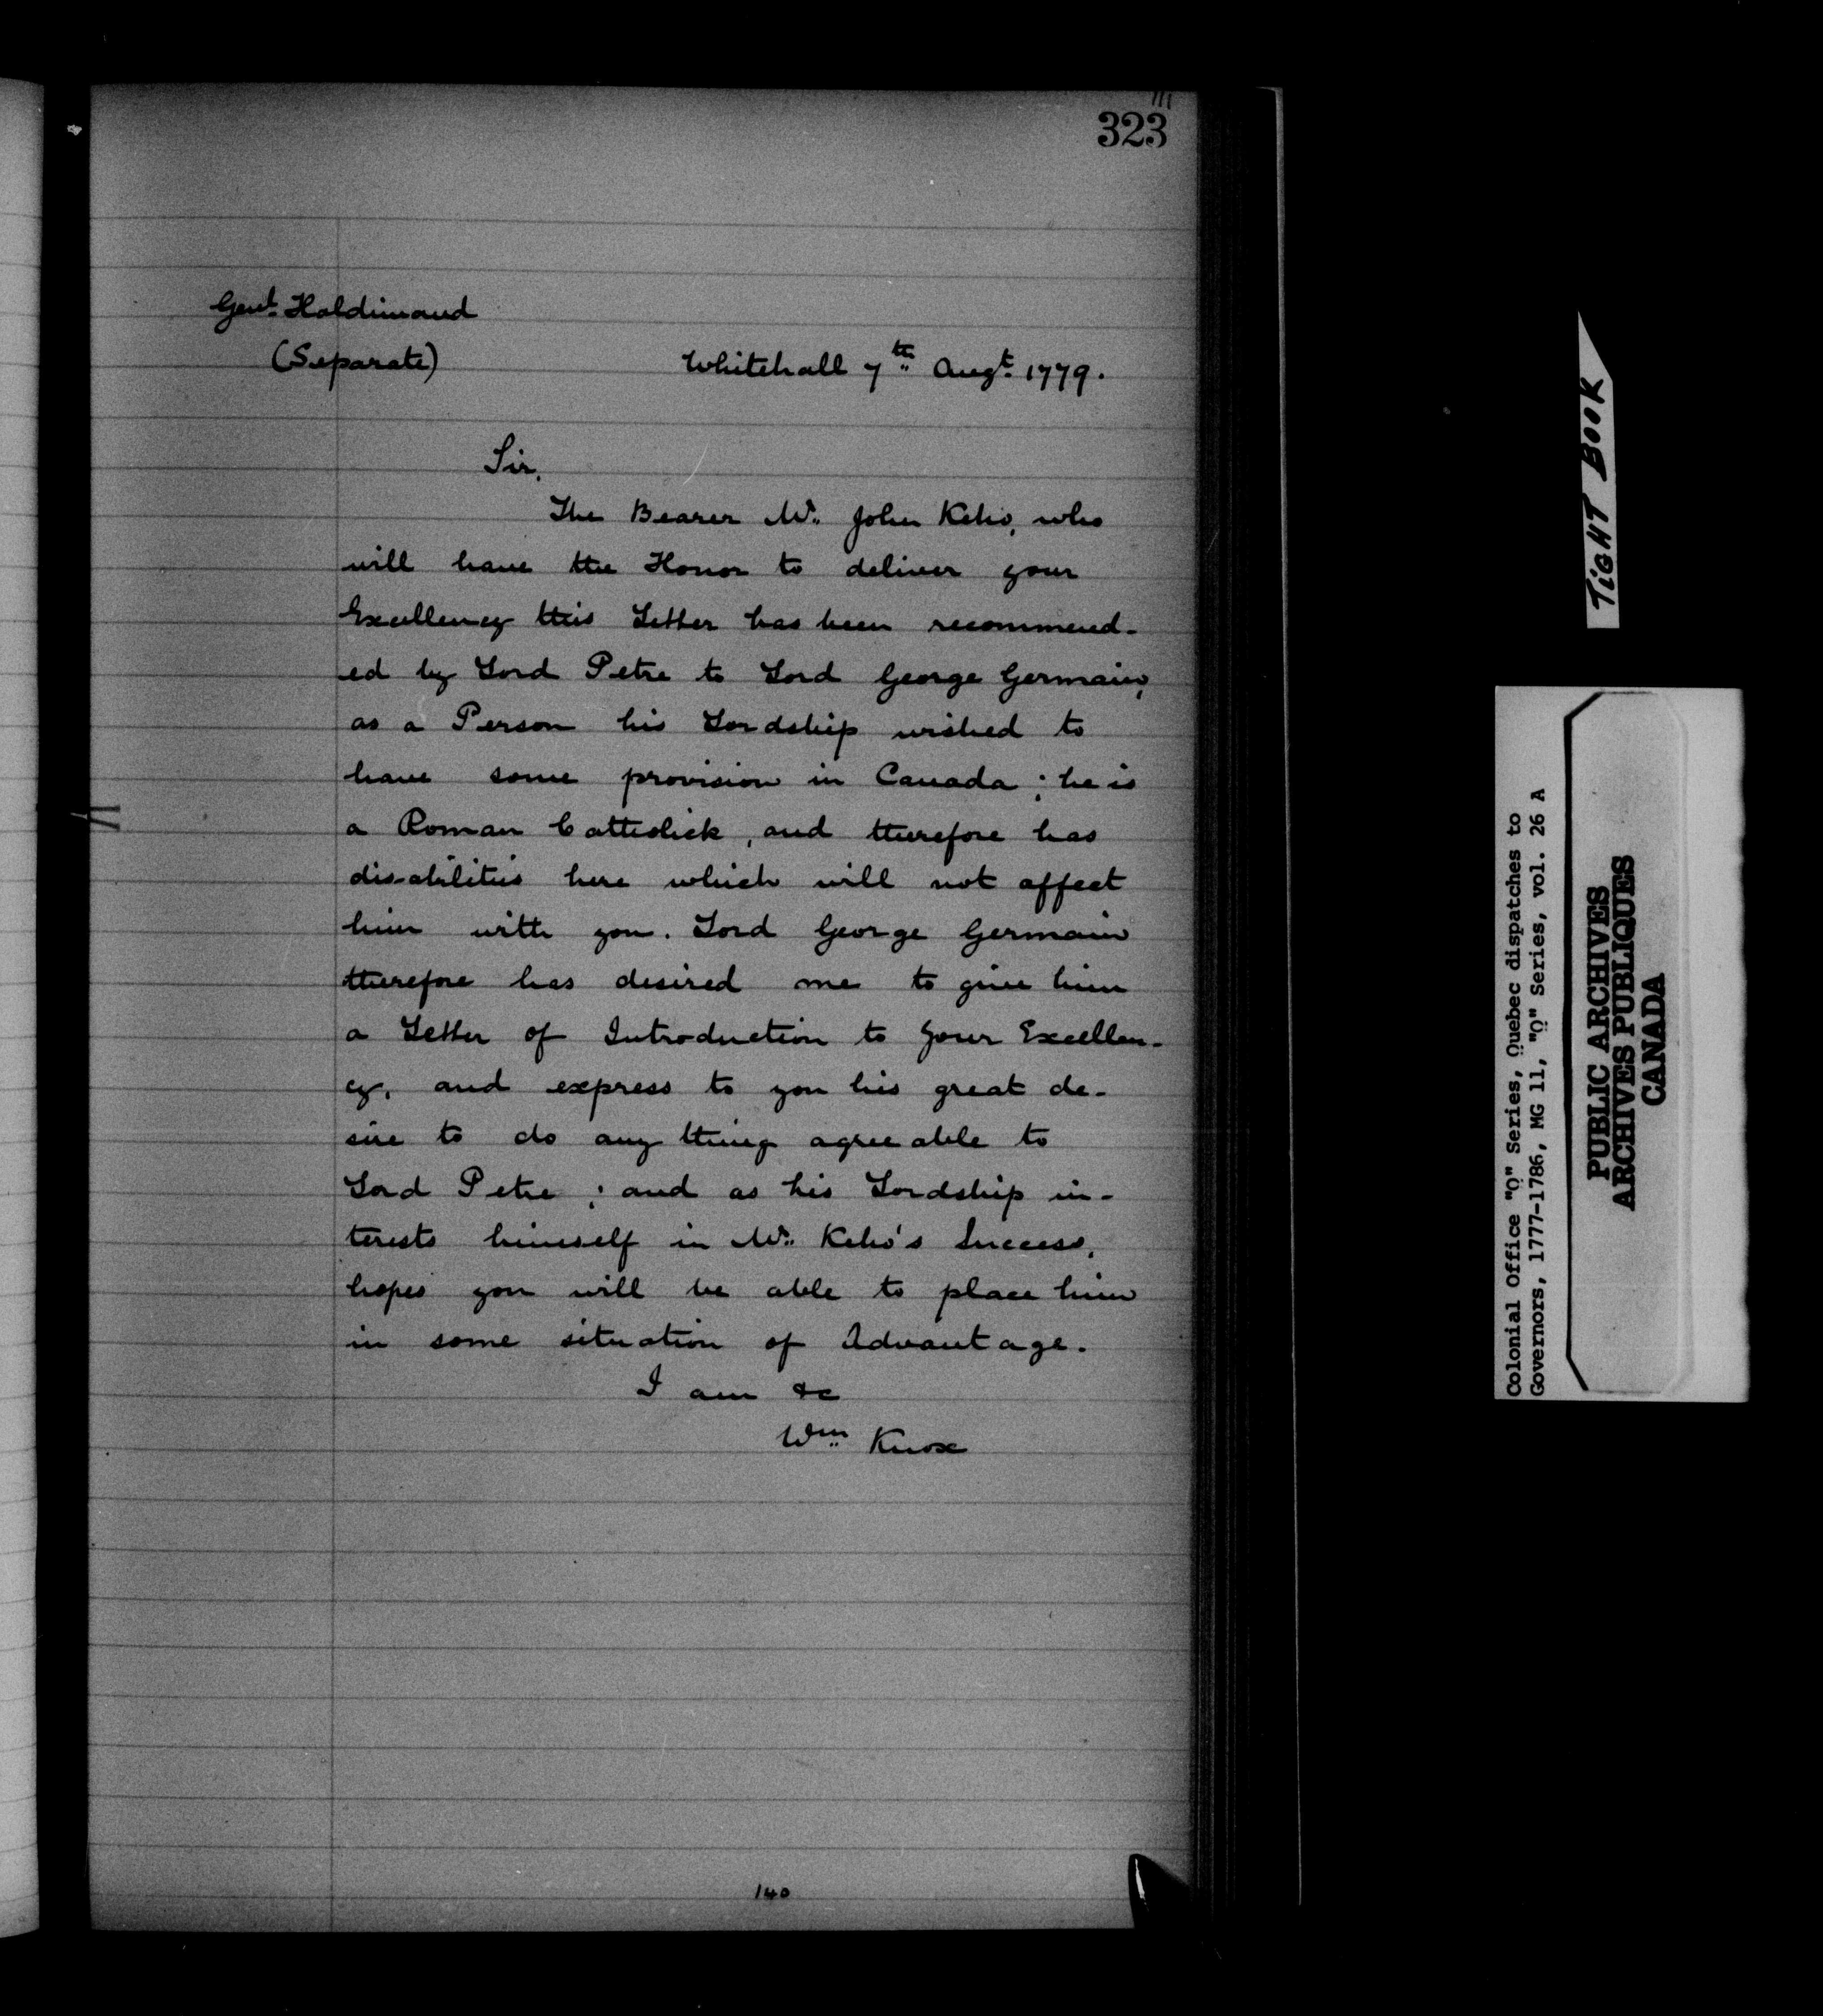 111
323
Genl. Haldimand
(Separate)
Whitehall 7th Augt. 1779.
Sir,
The Bearer Mr. John Keho, who
will have the Honor to deliver your
Excellency this Letter has been recommend-
ed by Lord Petre to Lord George Germain,
as a Person his Lordship wished to
have some provision in Canada; he is
a Roman Catholick, and therefore has
dis-abilities here which will not affect
him with you. Lord George Germain
therefore has desired me to give him
a Letter of Introduction to Your Excellen-
cy, and express to you his great de-
sire to do any thing agreeable to
Lord Petre; and as his Lordship in-
terests himself in Mr. Keho's Success,
hopes you will be able to place him
in some situation of Advantage.
I am &c
Wm. Knox
140
TiGHT BOOK
Colonial Office "Q" Series, Quebec dispatches to
Governors, 1777-1786, MG 11, "Q" Series, vol. 26 A
PUBLIC ARCHIVES
ARCHIVES PUBLIQUES
CANADA